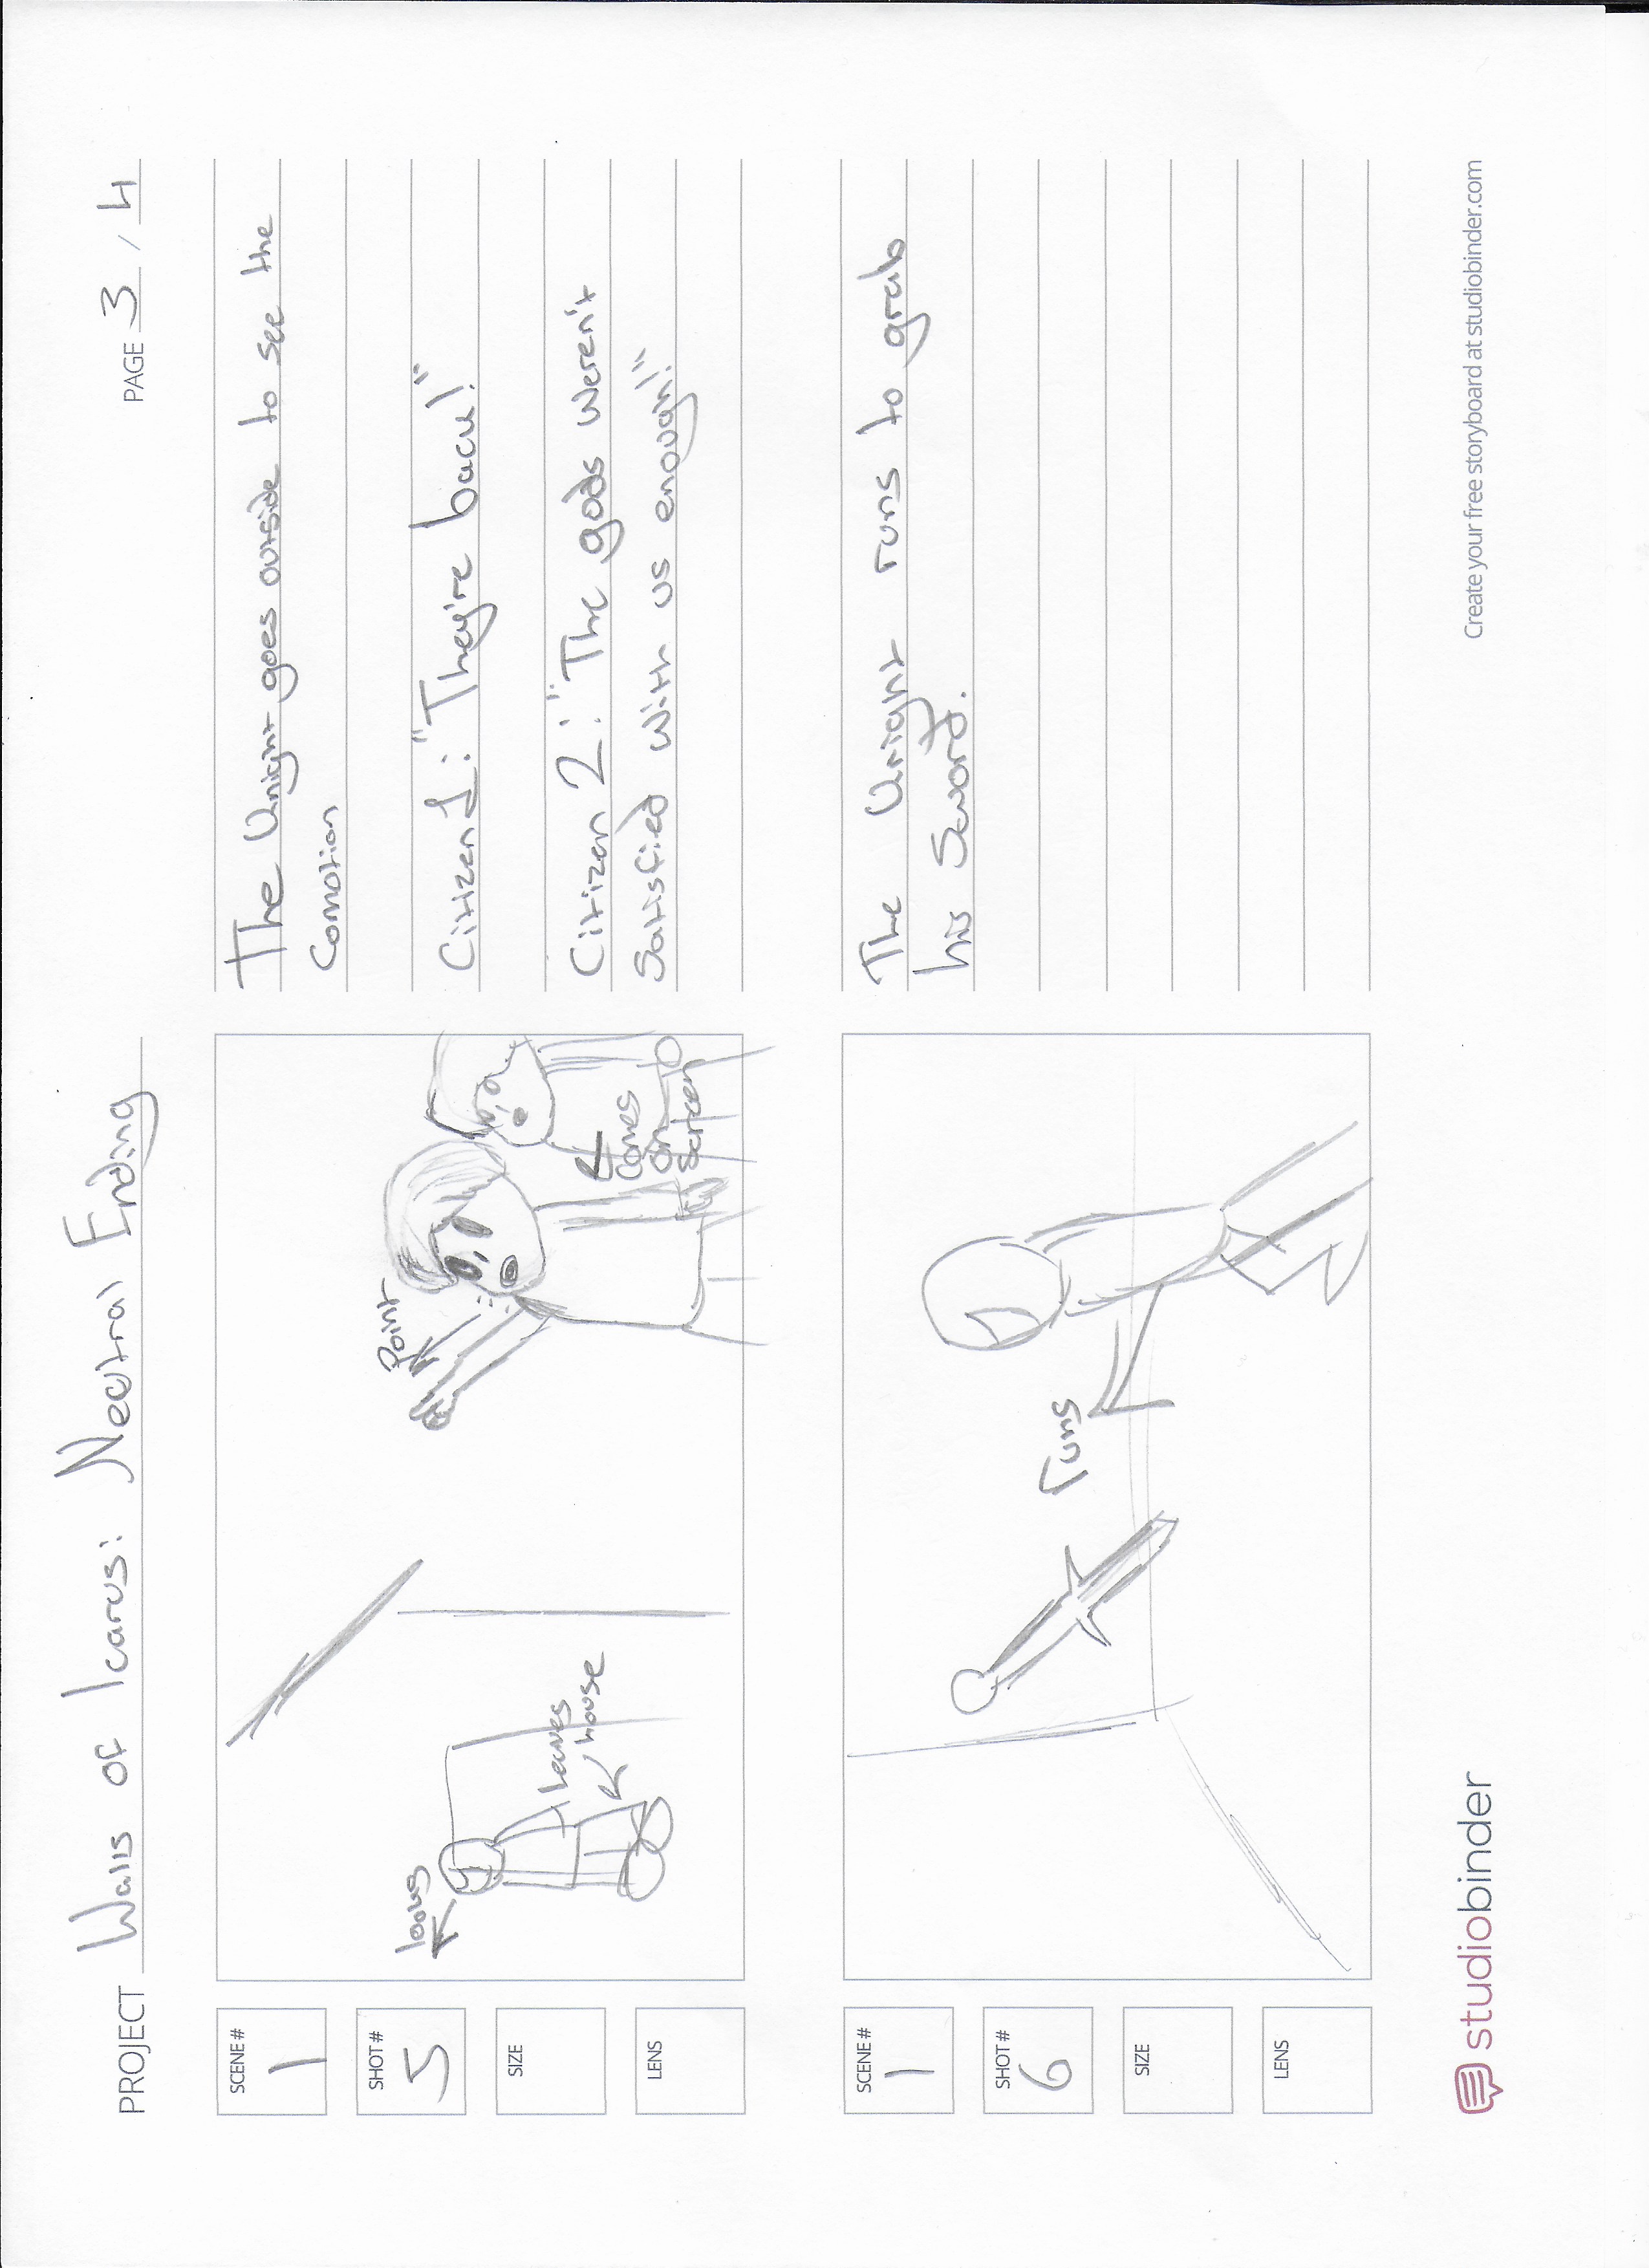 PROJECT Walls of Icarus: Neutral Ending
PAGE 3 / 4
SCENE # 1
SHOT # 5
SIZE
LENS
looks
leaves
house
Point
Comes
on
screen
The knight goes outside to see the
Comotion
Citizen 1: "They're back!"
Citizen 2: "The gods weren't
Satisfied with us enough!"
SCENE # 1
SHOT # 6
SIZE
LENS
runs
The knight runs to grab
his sword.
studiobinder
Create your free storyboard at studiobinder.com